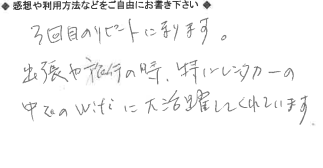 ◆ 感想や利用方法などをご自由にお書き下さい ◆
3回目のリピートになります。
出張や旅行の時、特にレンタカーの
中でのWifiに大活躍してくれています